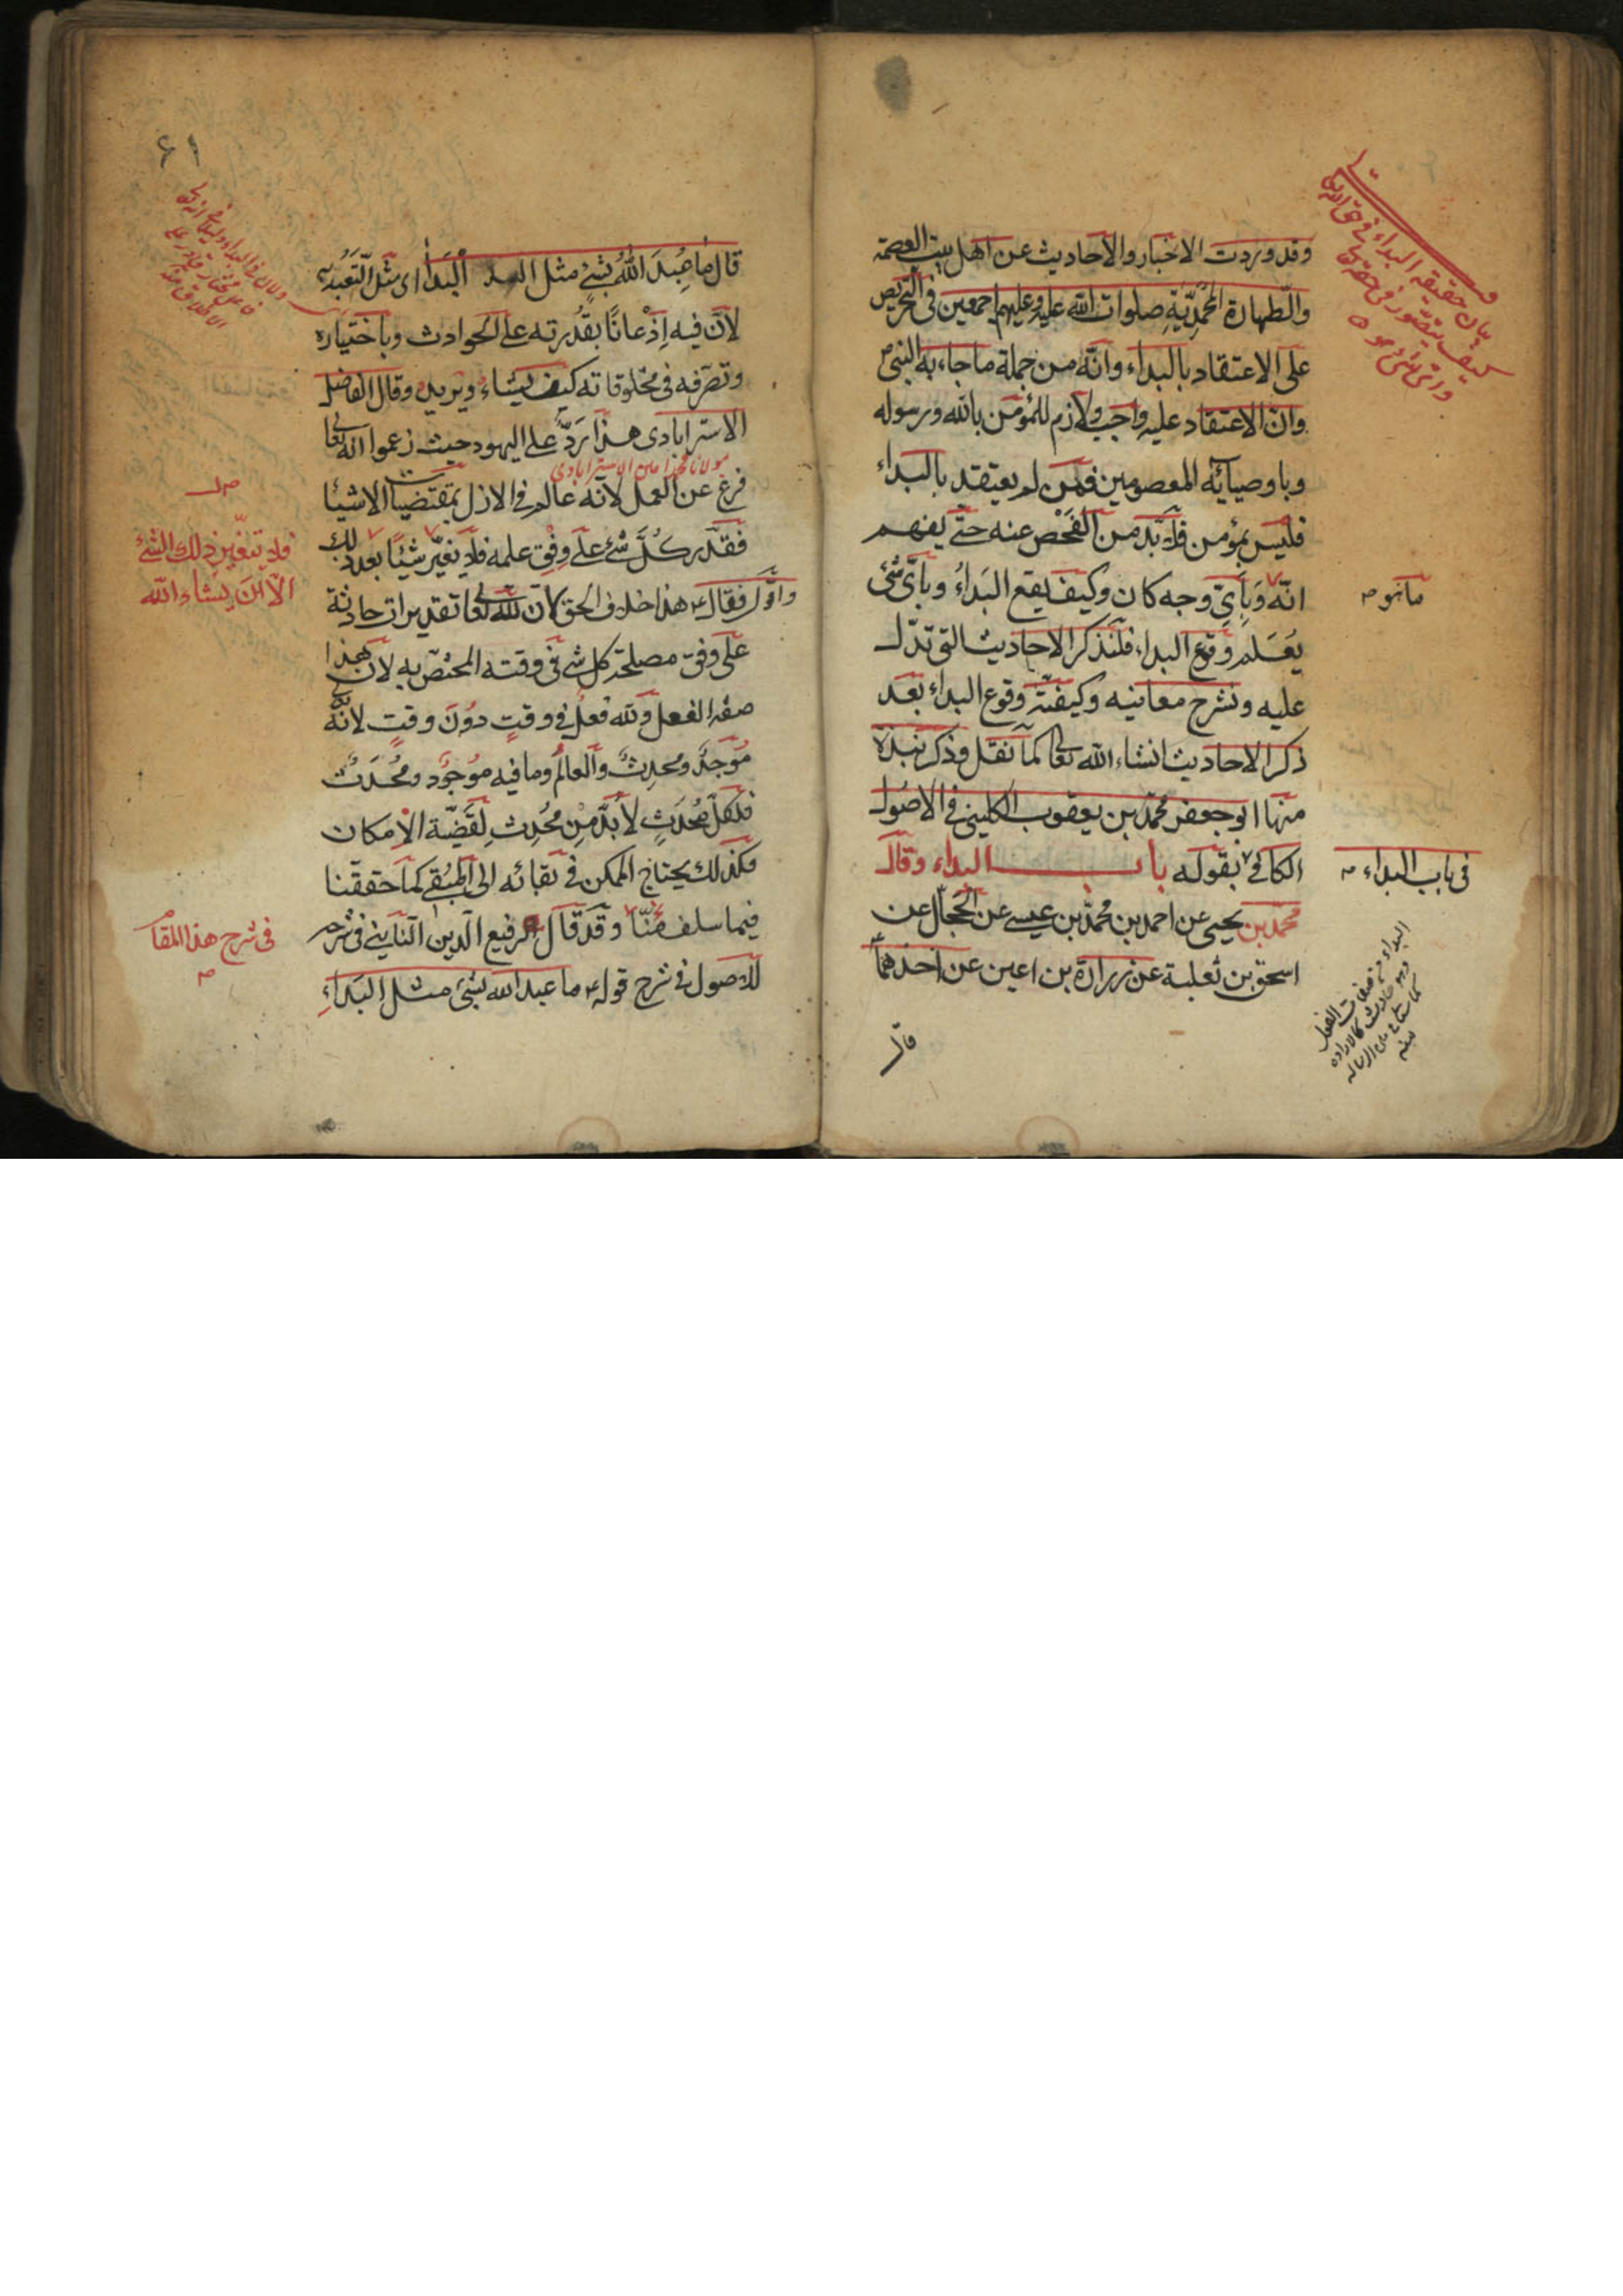 وقد وردت الاخبار والاحاديث عن اهل بيت العصمة
والطهارة المحمّديّة صلوات الله عليه وعليهم اجمعين فى التحريص
على الاعتقاد بالبداء وانّه من جملة ما جاء به النبى ص
وانّ الاعتقاد عليه واجب ولازم للمؤمن بالله ورسوله
وباوصيائه المعصومين فمن لم يعتقد بالبداء
فليس بمؤمن فلابدّ من الفحص عنه حتّى يفهم
انّه وَبِاَىّ وجه كان وكيف يقع البَداءُ وباىّ شئ
يُعْلَم وقوع البداء، فلنذكر الاحاديث التى تدّل
عليه ونشرح معانيه وكيفيّة وقوع البداء بعد
ذكر الاحاديث انشاء الله تعالى كما نقل وذكر نبذة
منها ابو جعفر محمّد بن يعقوب الكلينى فى الاصُول
الكافى بقوله باب البداء وقال
محمّد بن يحيى عن احمد بن محمّد بن عيسى عن الحجّال عن
اسحق بن ثعلبة عن زرارة بن اعين عن احدهما ع
قال
بيان حقيقة البداء
كيف يتصور فى
ما هو ص
فى باب البداء ص
البداء من صفات الفعل
وهو حادث كالارادة
منه
۶۱
قال ما عُبِدَ اللهُ بشئٍ مثل البَداء اى مثل التعَبُّد به
لانّ فيه اِذْعانًا بقُدْرته على الحوادث وباختياره
وتصرّفه فى مخلوقاته كيف يشاء ويريد وقال الفاضل
الاسترابادى هذا رَدّ على اليهود حيث زعموا انّه تعالى
مولانا محمّد امين الاسترابادى
فرغ عن العمل لانّه عالم فى الازل بمقتضيات الاشيا
فقدّر كُلّ شئ على وِفْق علمه فلا يغيّر شيئًا بعد ذلك
فقال ع هذا خلاف الحق لانّ لله تعالى تقديرات حادثة
على وفق مصلحة كل شى فى وقته المختصّ به لانّ هذا
صفة الفعل ولله فعلٌ فى وقتٍ دُوْنَ وقت لانّه تعالى
مُوْجِدٌ ومُحدِثٌ والعالَمُ وما فيه مَوْجُود ومُحْدَثٌ
فلكلّ مُحْدَثٍ لابُدَّ مِنْ مُحْدِثٍ لِقَضِيّة الاِمْكان
فكذلك يحتاج الممكن فى بقائه الى المُبْقى كما حققنا
فيما سلف منّا وقد قال الرفيع الدين النّاينى فى شرحه
للاصول فى شرح قوله ع ما عبد الله بشئ مثل البَداءِ
فلا يتغيّر ذلك الشئ
الّا ان يشاء الله
فى شرح هذا المقام
ص